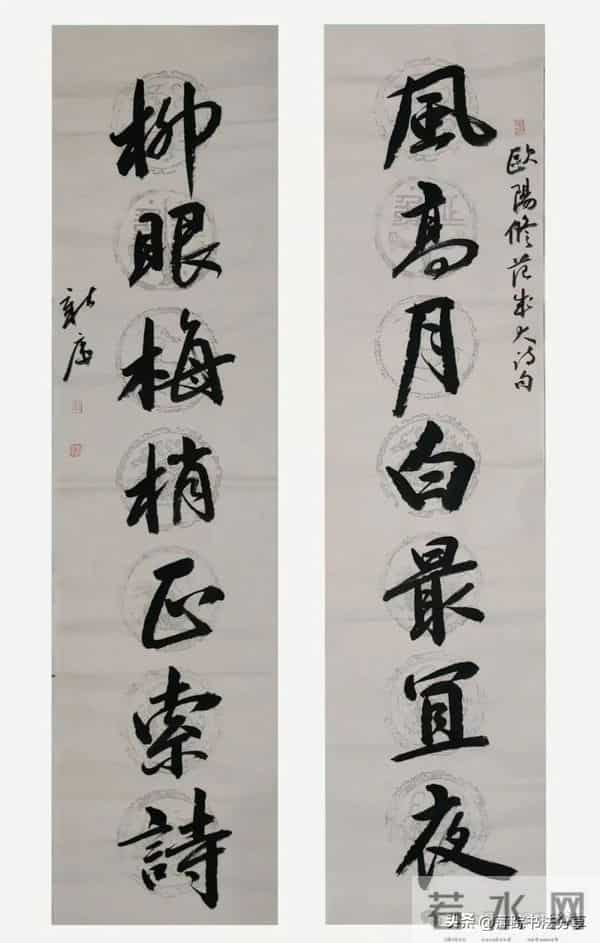 歐陽修范成大诗句
風高月白最宜夜
柳眼梅梢正索詩
若水网
头条 @书法分享